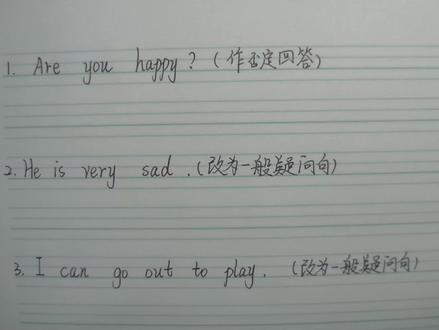 1. Are you happy? (作否定回答)
2. He is very sad. (改为一般疑问句)
3. I can go out to play. (改为一般疑问句)